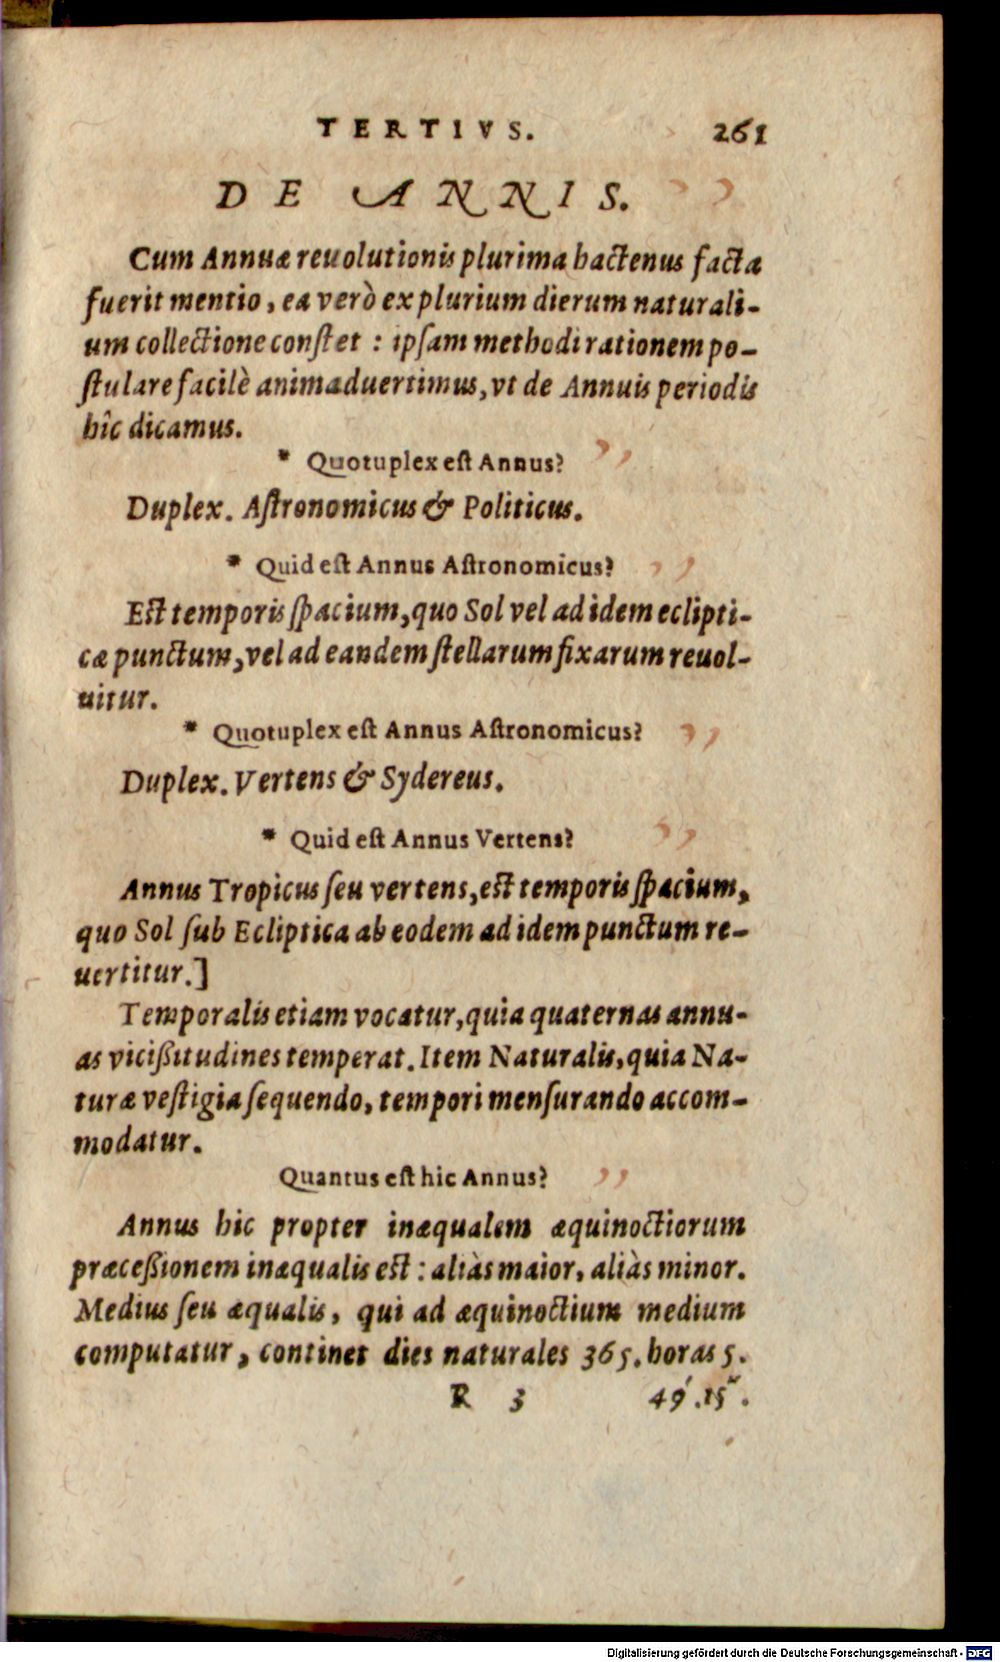 TERTIVS. 261
DE ANNIS.
Cum Annuæ reuolutionis plurima hactenus facta
fuerit mentio, ea verò ex plurium dierum naturali-
um collectione constet : ipsam methodi rationem po-
stulare facilè animaduertimus, vt de Annuis periodis
hîc dicamus.
* Quotuplex est Annus?
Duplex. Astronomicus & Politicus.
* Quid est Annus Astronomicus?
Est temporis spacium, quo Sol vel ad idem eclipti-
cæ punctum, vel ad eandem stellarum fixarum reuol-
uitur.
* Quotuplex est Annus Astronomicus?
Duplex. Vertens & Sydereus.
* Quid est Annus Vertens?
Annus Tropicus seu vertens, est temporis spacium,
quo Sol sub Ecliptica ab eodem ad idem punctum re-
uertitur.]
Temporalis etiam vocatur, quia quaternas annu-
as vicißitudines temperat. Item Naturalis, quia Na-
turæ vestigia sequendo, tempori mensurando accom-
modatur.
Quantus est hic Annus?
Annus hic propter inæqualem æquinoctiorum
præceßionem inæqualis est : aliàs maior, aliàs minor.
Medius seu æqualis, qui ad æquinoctium medium
computatur, continet dies naturales 365. horas 5.
R 3 49′.15″.
Digitalisierung gefördert durch die Deutsche Forschungsgemeinschaft - DFG